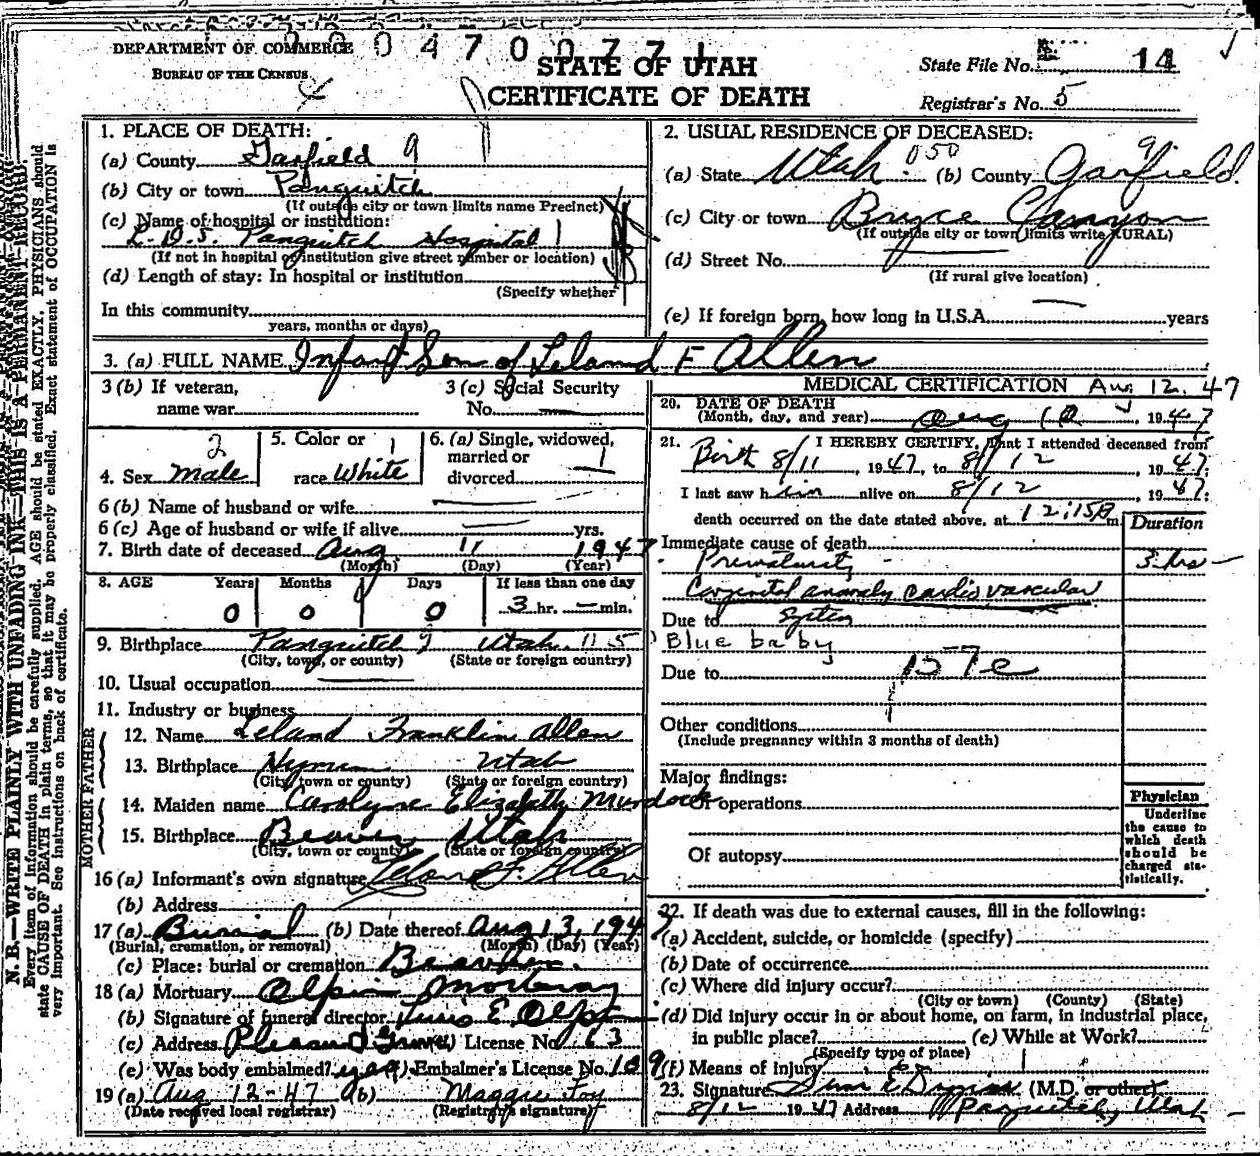 DEPARTMENT OF COMMERCE
BUREAU OF THE CENSUS
STATE OF UTAH
CERTIFICATE OF DEATH
State File No. 14
Registrar's No. 5
1. PLACE OF DEATH:
(a) County Garfield 9
(b) City or town Panguitch
(If outside city or town limits name Precinct)
(c) Name of hospital or institution:
L.D.S. Panguitch Hospital
(If not in hospital or institution give street number or location)
(d) Length of stay: In hospital or institution
(Specify whether
In this community
years, months or days)
2. USUAL RESIDENCE OF DECEASED:
(a) State Utah 050 (b) County Garfield 9
(c) City or town Bryce Canyon
(If outside city or town limits write RURAL)
(d) Street No.
(If rural give location)
(e) If foreign born, how long in U.S.A. — years
3. (a) FULL NAME Infant Son of Leland F Allen
3 (b) If veteran,
name war
3 (c) Social Security
No. —
4. Sex Male 2
5. Color or
race White 1
6. (a) Single, widowed,
married or
divorced 1
6 (b) Name of husband or wife —
6 (c) Age of husband or wife if alive — yrs.
7. Birth date of deceased Aug. 11 1947
(Month) (Day) (Year)
8. AGE Years Months Days If less than one day
0 0 0 3 hr. — min.
9. Birthplace Panguitch 9 Utah
(City, town, or county) (State or foreign country)
10. Usual occupation —
11. Industry or business
FATHER
12. Name Leland Franklin Allen
13. Birthplace Hyrum Utah
(City, town or county) (State or foreign country)
MOTHER
14. Maiden name Carolyne Elizabeth Murdock
15. Birthplace Beaver Utah
(City, town or county) (State or foreign country)
16 (a) Informant's own signature Leland F. Allen
(b) Address
17 (a) Burial (b) Date thereof Aug 13, 1947
(Burial, cremation, or removal) (Month) (Day) (Year)
(c) Place: burial or cremation
18 (a) Mortuary Mortuary
(b) Signature of funeral director
(c) Address Pleasant Grove (d) License No. 63
(e) Was body embalmed? (f) Embalmer's License No.
19 (a) Aug 12-47 (b) Maggie Foy
(Date received local registrar) (Registrar's signature)
MEDICAL CERTIFICATION Aug 12. 47
20. DATE OF DEATH
(Month, day, and year) Aug 12, 1947
21. I HEREBY CERTIFY, that I attended deceased from
Birth 8/11, 1947, to 8/12, 1947;
I last saw him alive on 8/12, 1947;
death occurred on the date stated above, at 12:15 m
Duration
Immediate cause of death
Prematurity 3 hrs
Congenital anomaly cardio vascular
Due to system
Blue baby
Due to 157e
Other conditions
(Include pregnancy within 3 months of death)
Major findings:
Of operations
Of autopsy
Physician
Underline the cause to which death should be charged statistically.
22. If death was due to external causes, fill in the following:
(a) Accident, suicide, or homicide (specify)
(b) Date of occurrence
(c) Where did injury occur?
(City or town) (County) (State)
(d) Did injury occur in or about home, on farm, in industrial place,
in public place? (e) While at Work?
(Specify type of place)
(f) Means of injury
23. Signature (M.D. or other)
8/12 1947 Address Panguitch, Utah
N. B.—WRITE PLAINLY WITH UNFADING INK—THIS IS A PERMANENT RECORD.
Every item of information should be carefully supplied. AGE should be stated EXACTLY. PHYSICIANS should
state CAUSE OF DEATH in plain terms, so that it may be properly classified. Exact statement of OCCUPATION is
very important. See instructions on back of certificate.